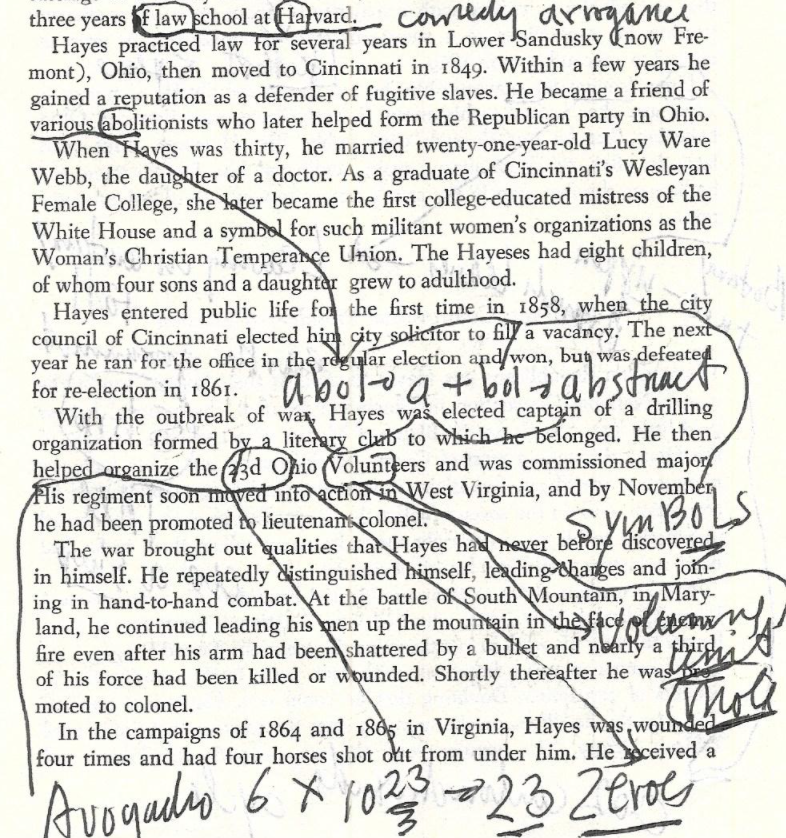 three years of law school at Harvard. comedy arrogance
Hayes practiced law for several years in Lower Sandusky (now Fre-
mont), Ohio, then moved to Cincinnati in 1849. Within a few years he
gained a reputation as a defender of fugitive slaves. He became a friend of
various abolitionists who later helped form the Republican party in Ohio.
When Hayes was thirty, he married twenty-one-year-old Lucy Ware
Webb, the daughter of a doctor. As a graduate of Cincinnati's Wesleyan
Female College, she later became the first college-educated mistress of the
White House and a symbol for such militant women's organizations as the
Woman's Christian Temperance Union. The Hayeses had eight children,
of whom four sons and a daughter grew to adulthood.
Hayes entered public life for the first time in 1858, when the city
council of Cincinnati elected him city solicitor to fill a vacancy. The next
year he ran for the office in the regular election and won, but was defeated
for re-election in 1861.
abol → a + bol → abstract
With the outbreak of war, Hayes was elected captain of a drilling
organization formed by a literary club to which he belonged. He then
helped organize the 23d Ohio Volunteers and was commissioned major.
His regiment soon moved into action in West Virginia, and by November
he had been promoted to lieutenant colonel.
SYmBOLS
The war brought out qualities that Hayes had never before discovered
in himself. He repeatedly distinguished himself, leading charges and join-
ing in hand-to-hand combat. At the battle of South Mountain, in Mary-
land, he continued leading his men up the mountain in the face of enemy
fire even after his arm had been shattered by a bullet and nearly a third
of his force had been killed or wounded. Shortly thereafter he was pro-
moted to colonel.
unit
mole
In the campaigns of 1864 and 1865 in Virginia, Hayes was wounded
four times and had four horses shot out from under him. He received a
Avogadro 6 × 10 23 → 23 Zeroes